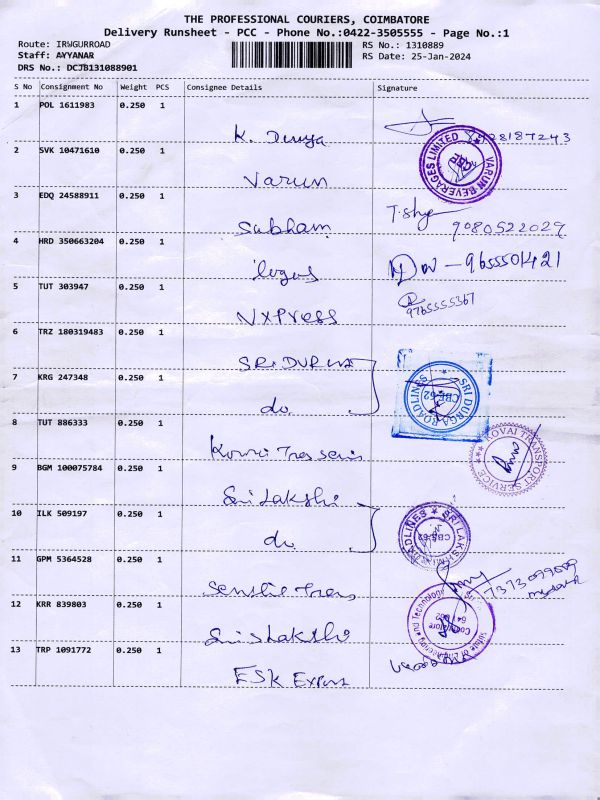 THE PROFESSIONAL COURIERS, COIMBATORE
Delivery Runsheet - PCC - Phone No.:0422-3505555 - Page No.:1
Route: IRWGURROAD RS No.: 1310889
Staff: AYYANAR RS Date: 25-Jan-2024
DRS No.: DCJB131088901
S No Consignment No Weight PCS Consignee Details Signature
1 POL 1611983 0.250 1
K. Divya
VARUN BEVERAGES LIMITED
2 SVK 10471610 0.250 1
Varun
3 EDQ 24588911 0.250 1
Subham 9080522029
4 HRD 350663204 0.250 1
logus 9655501421
5 TUT 303947 0.250 1
NXPress 9765555367
6 TRZ 180319483 0.250 1
SRI DURGA
7 KRG 247348 0.250 1
do
SRI DURGA ROADLINES CBE-62
8 TUT 886333 0.250 1
KOVAI TRANSPORT SERVICE
9 BGM 100075784 0.250 1
Sri Lakshi
10 ILK 509197 0.250 1
do
SRI LAKSHMI ROADLINES CBE-62
11 GPM 5364528 0.250 1
7373099009
12 KRR 839803 0.250 1
Sri Shakthi
Engineering and Technology Coimbatore 641 062
13 TRP 1091772 0.250 1
ESK Express